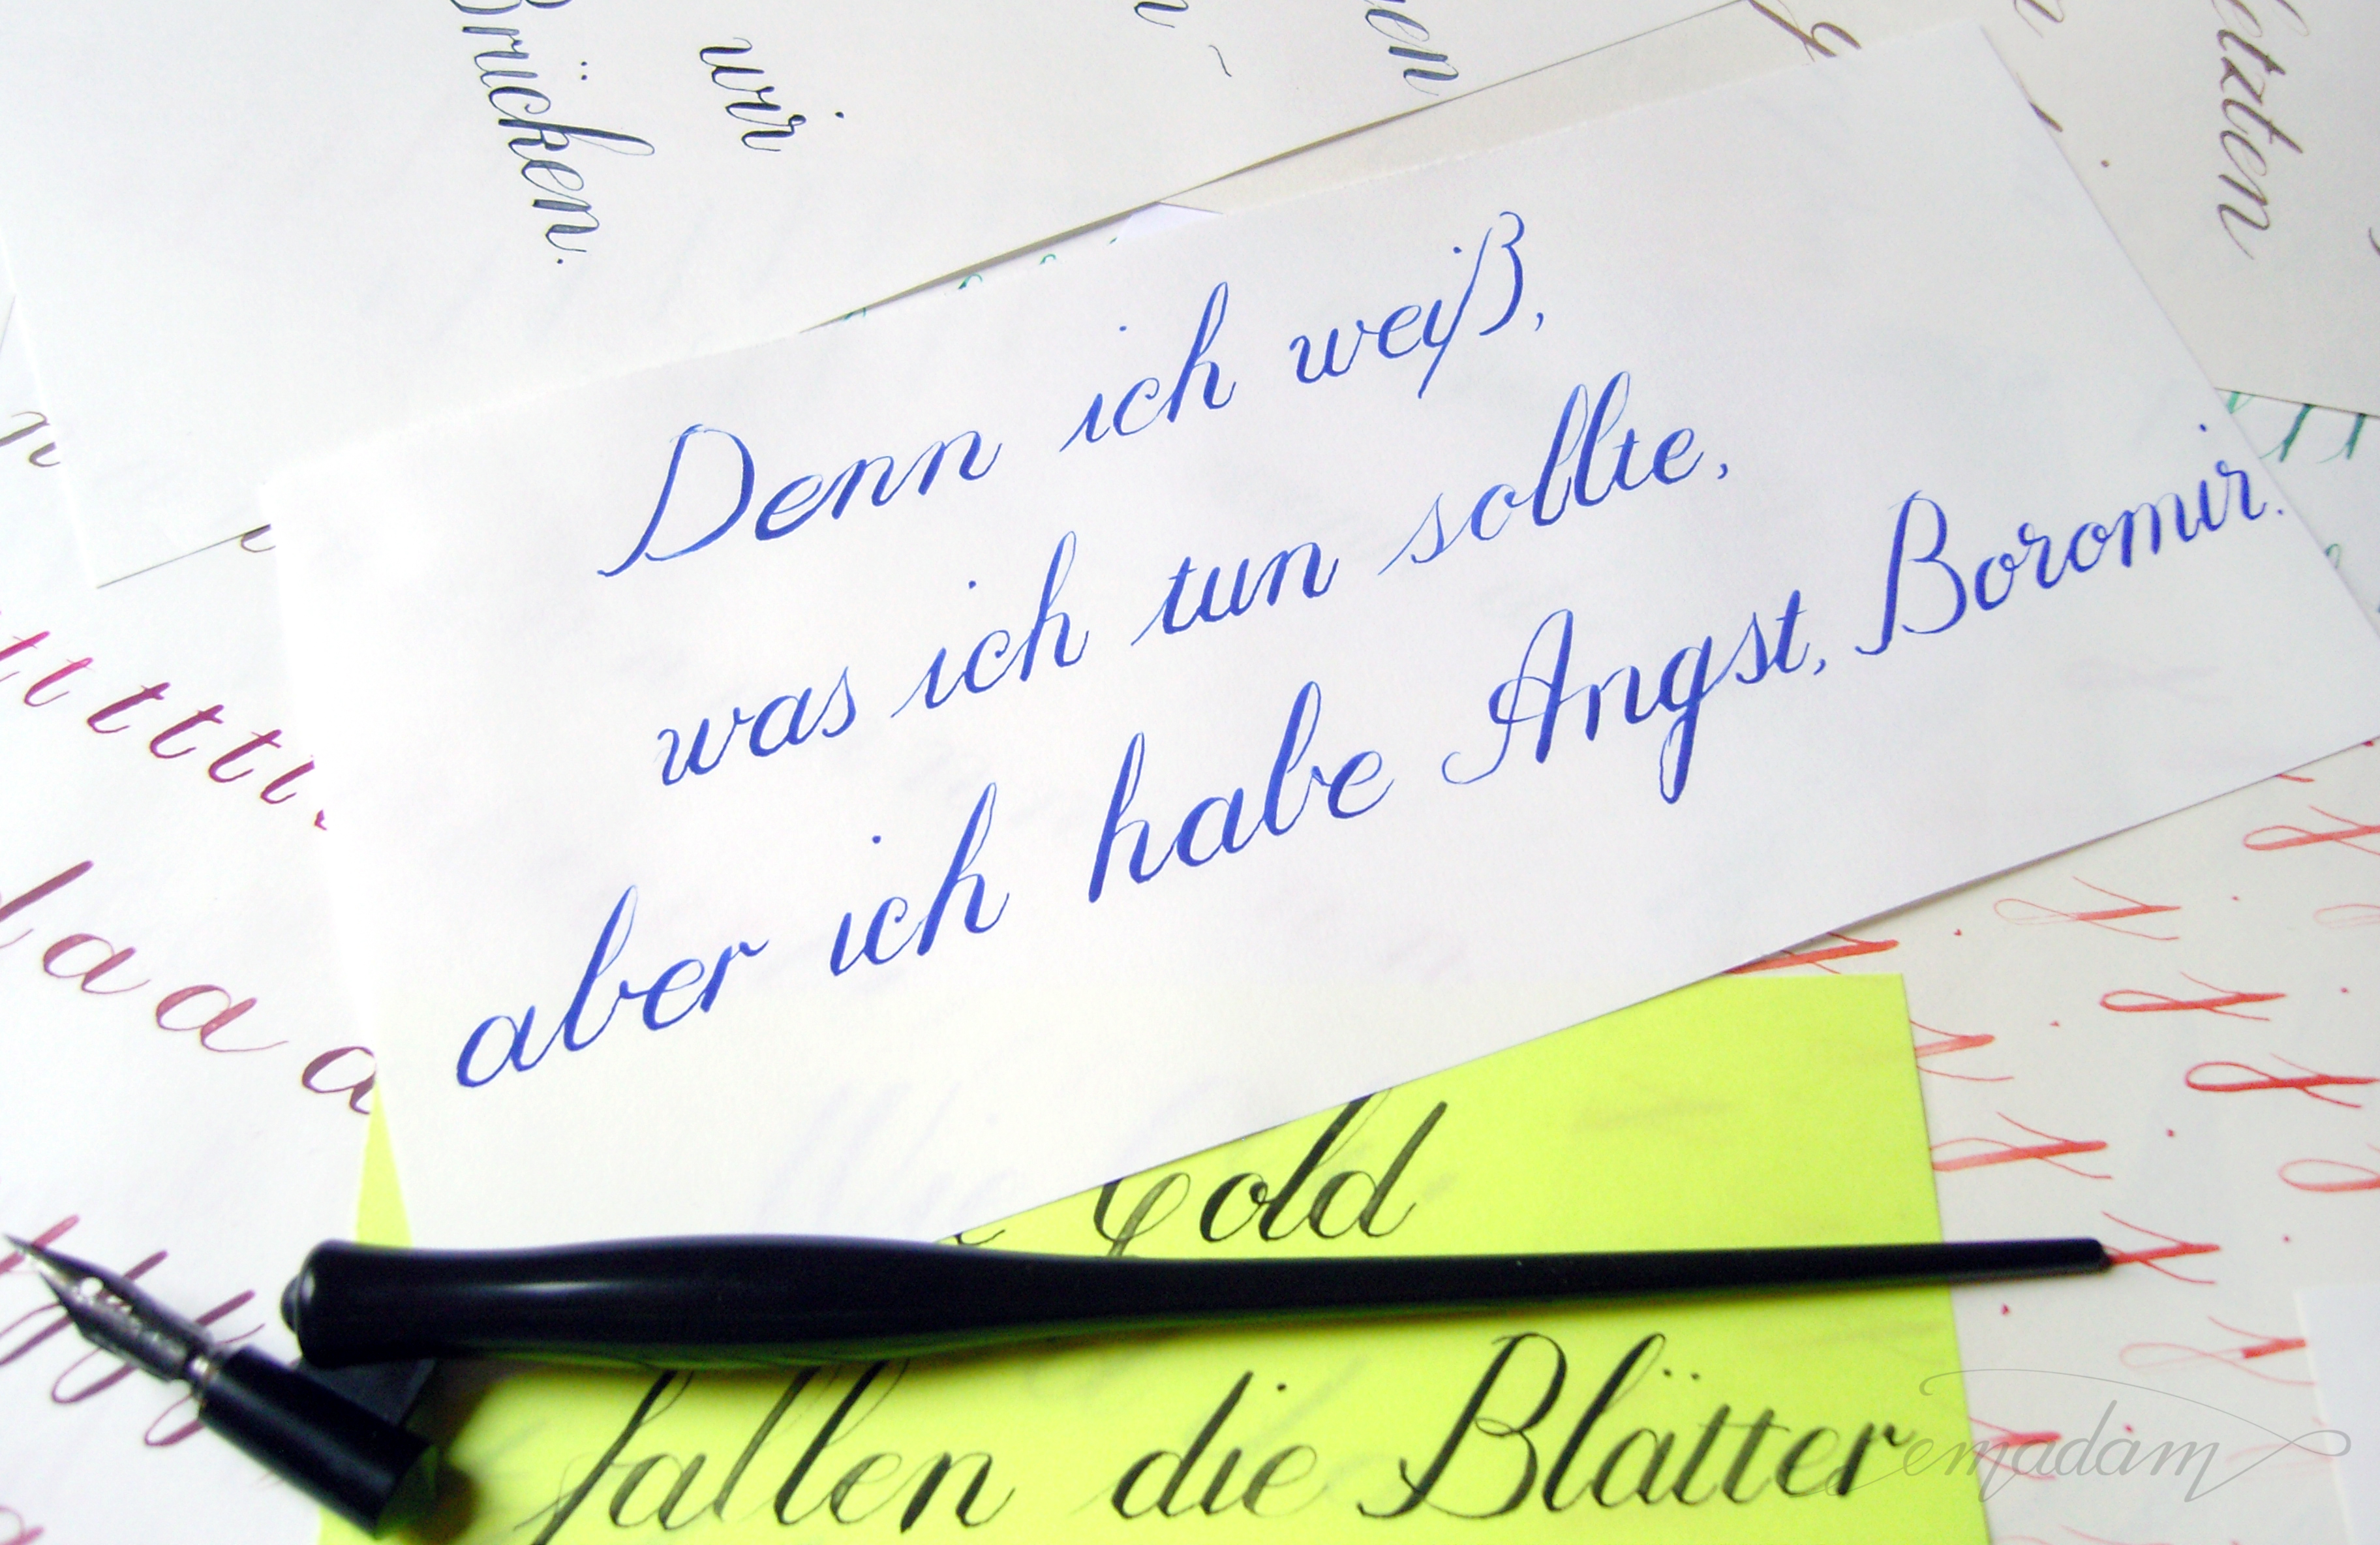 Brücken.
wir
Denn ich weiß,
was ich tun sollte,
aber ich habe Angst, Boromir.
t t t t t
a a a
Gold
fallen die Blätter
emadam